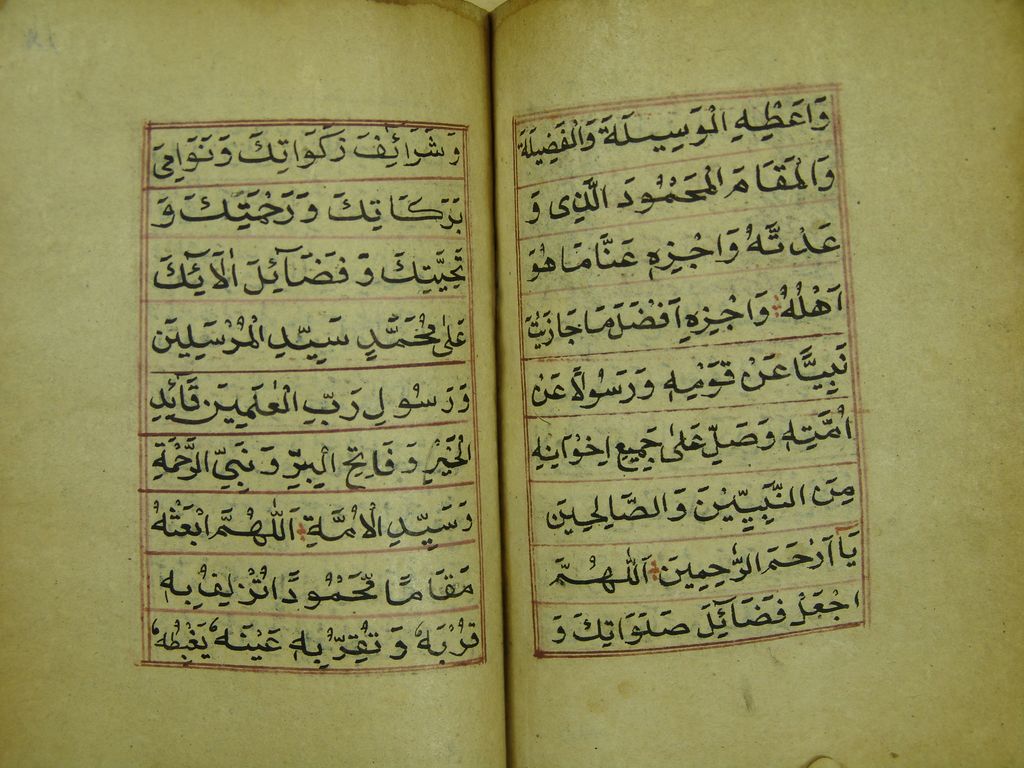 وَاَعْطِهِ الْوَسِيلَةَ وَالْفَضِيلَةَ
وَالْمَقَامَ الْمَحْمُودَ الَّذِى وَ
عَدْتَّهُ وَاجْزِهِ عَنَّا مَا هُوَ
اَهْلُهُ وَاجْزِهِ اَفْضَلَ مَا جَازَيْتَ
نَبِيًّا عَنْ قَوْمِهِ وَرَسُولًا عَنْ
اُمَّتِهِ وَصَلِّ عَلٰى جَمِيعِ اِخْوَانِهِ
مِنَ النَّبِيِّيْنَ وَالصَّالِحِينَ
يَا اَرْحَمَ الرَّاحِمِينَ اَللّٰهُمَّ
اجْعَلْ فَضَائِلَ صَلَوَاتِكَ وَ
وَ شَرَائِفَ زَكَوَاتِكَ وَنَوَامِىَ
بَرَكَاتِكَ وَرَحْمَتِكَ وَ
تَحِيَّتِكَ وَفَضَائِلَ اٰلَائِكَ
عَلٰى مُحَمَّدٍ سَيِّدِ الْمُرْسَلِينَ
وَرَسُولِ رَبِّ الْعٰلَمِينَ قَائِدِ
الْخَيْرِ وَفَاتِحِ الْبِرِّ وَنَبِيِّ الرَّحْمَةِ
وَسَيِّدِ الْاُمَّةِ اَللّٰهُمَّ ابْعَثْهُ
مَقَامًا مَّحْمُودًا تُزْلِفُ بِهِ
قُرْبَهُ وَتُقِرُّ بِهِ عَيْنَهُ يَغْبِطُهُ